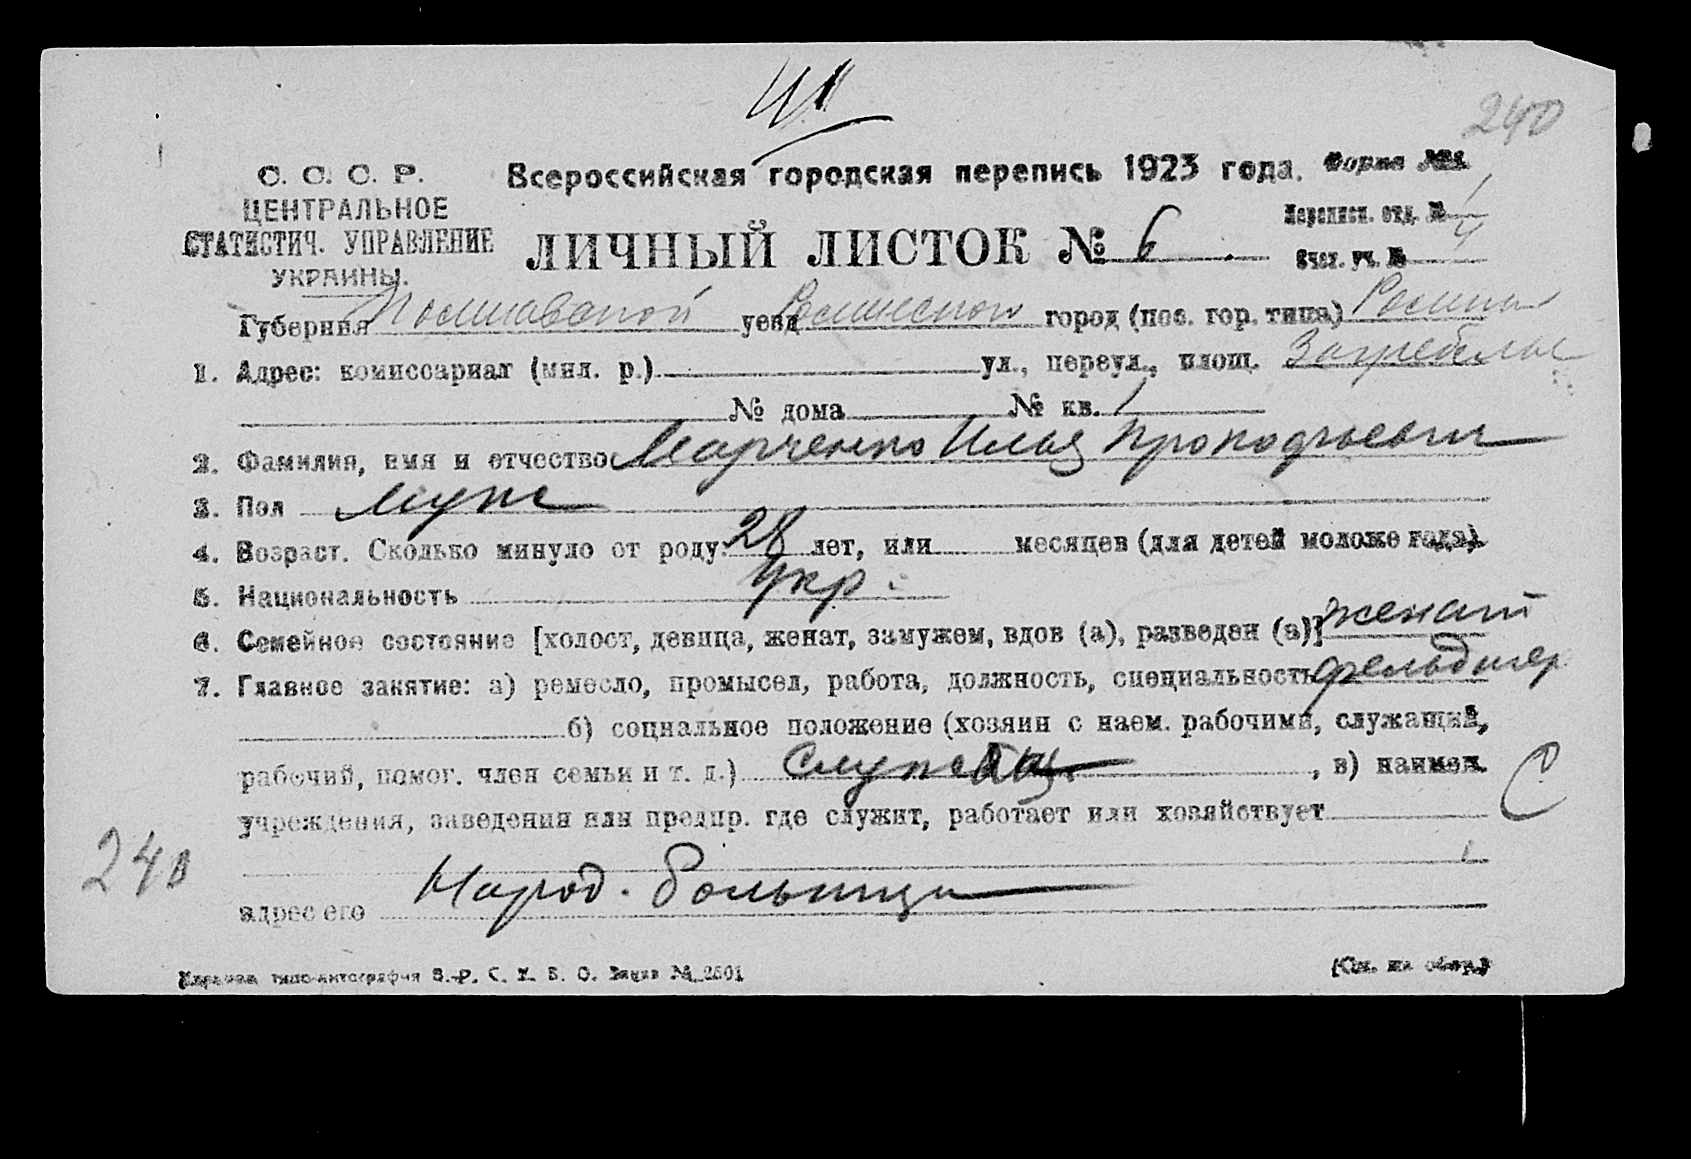 41
240
С. С. С. Р.
ЦЕНТРАЛЬНОЕ
СТАТИСТИЧ. УПРАВЛЕНИЕ
УКРАИНЫ.
Всероссийская городская перепись 1923 года. Форма №1.
ЛИЧНЫЙ ЛИСТОК № 6
Переписн. отд. № 1
Счет. уч. № 4
Губерния Полтавской уезд Роменского город (пос. гор. типа) Ромны
1. Адрес: комиссариат (мил. р.) ул., переул., площ. Загребелье
№ дома № кв. 1
2. Фамилия, имя и отчество Марченко Илья Прокофьевич
3. Пол муж
4. Возраст. Сколько минуло от роду: 28 лет, или месяцев (для детей моложе года).
5. Национальность Укр.
6. Семейное состояние [холост, девица, женат, замужем, вдов (а), разведен (а)] женат
7. Главное занятие: а) ремесло, промысел, работа, должность, специальность фельдшер
б) социальное положение (хозяин с наем. рабочими, служащий,
рабочий, помог. член семьи и т. д.) служащ. , в) наимен.
С
учреждения, заведения или предпр. где служит, работает или хозяйствует
240
адрес его Народ. больница
типо-литография В.-Р. С. Х. В. О. Заказ № 2501
(См. на обор.)